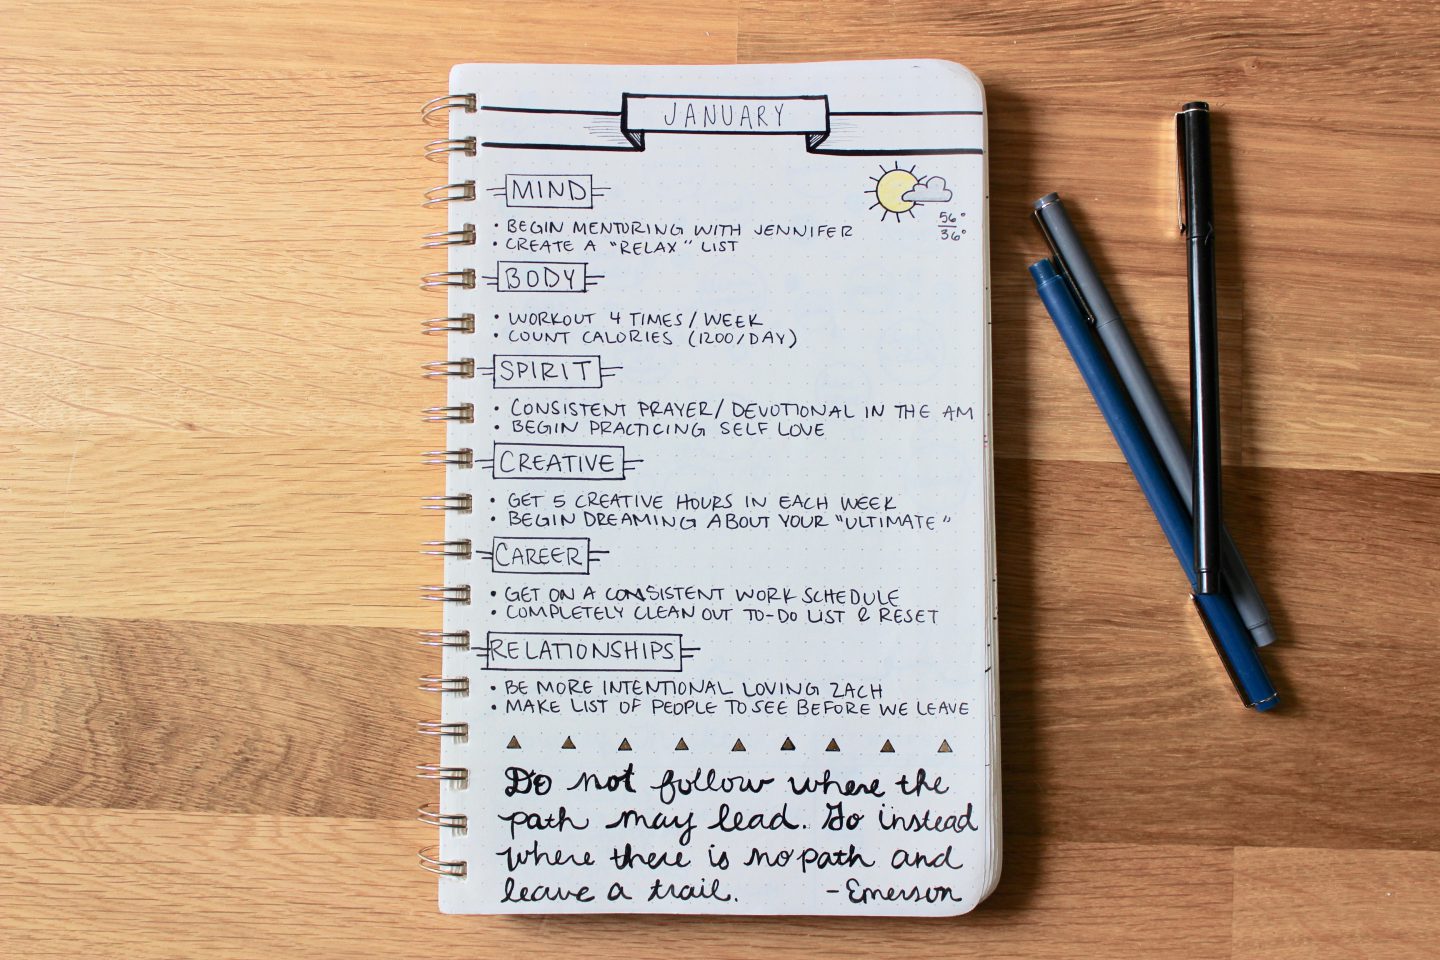 JANUARY
56°
36°
MIND
• BEGIN MENTORING WITH JENNIFER
• CREATE A "RELAX" LIST
BODY
• WORKOUT 4 TIMES / WEEK
• COUNT CALORIES (1200/DAY)
SPIRIT
• CONSISTENT PRAYER/ DEVOTIONAL IN THE AM
• BEGIN PRACTICING SELF LOVE
CREATIVE
• GET 5 CREATIVE HOURS IN EACH WEEK
• BEGIN DREAMING ABOUT YOUR "ULTIMATE"
CAREER
• GET ON A CONSISTENT WORK SCHEDULE
• COMPLETELY CLEAN OUT TO-DO LIST & RESET
RELATIONSHIPS
• BE MORE INTENTIONAL LOVING ZACH
• MAKE LIST OF PEOPLE TO SEE BEFORE WE LEAVE
Do not follow where the
path may lead. Go instead
where there is no path and
leave a trail. -Emerson